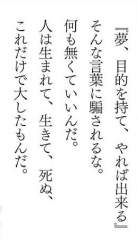 『夢、目的を持て、やれば出来る』
そんな言葉に騙されるな。
何も無くていいんだ。
人は生まれて、生きて、死ぬ、
これだけで大したもんだ。